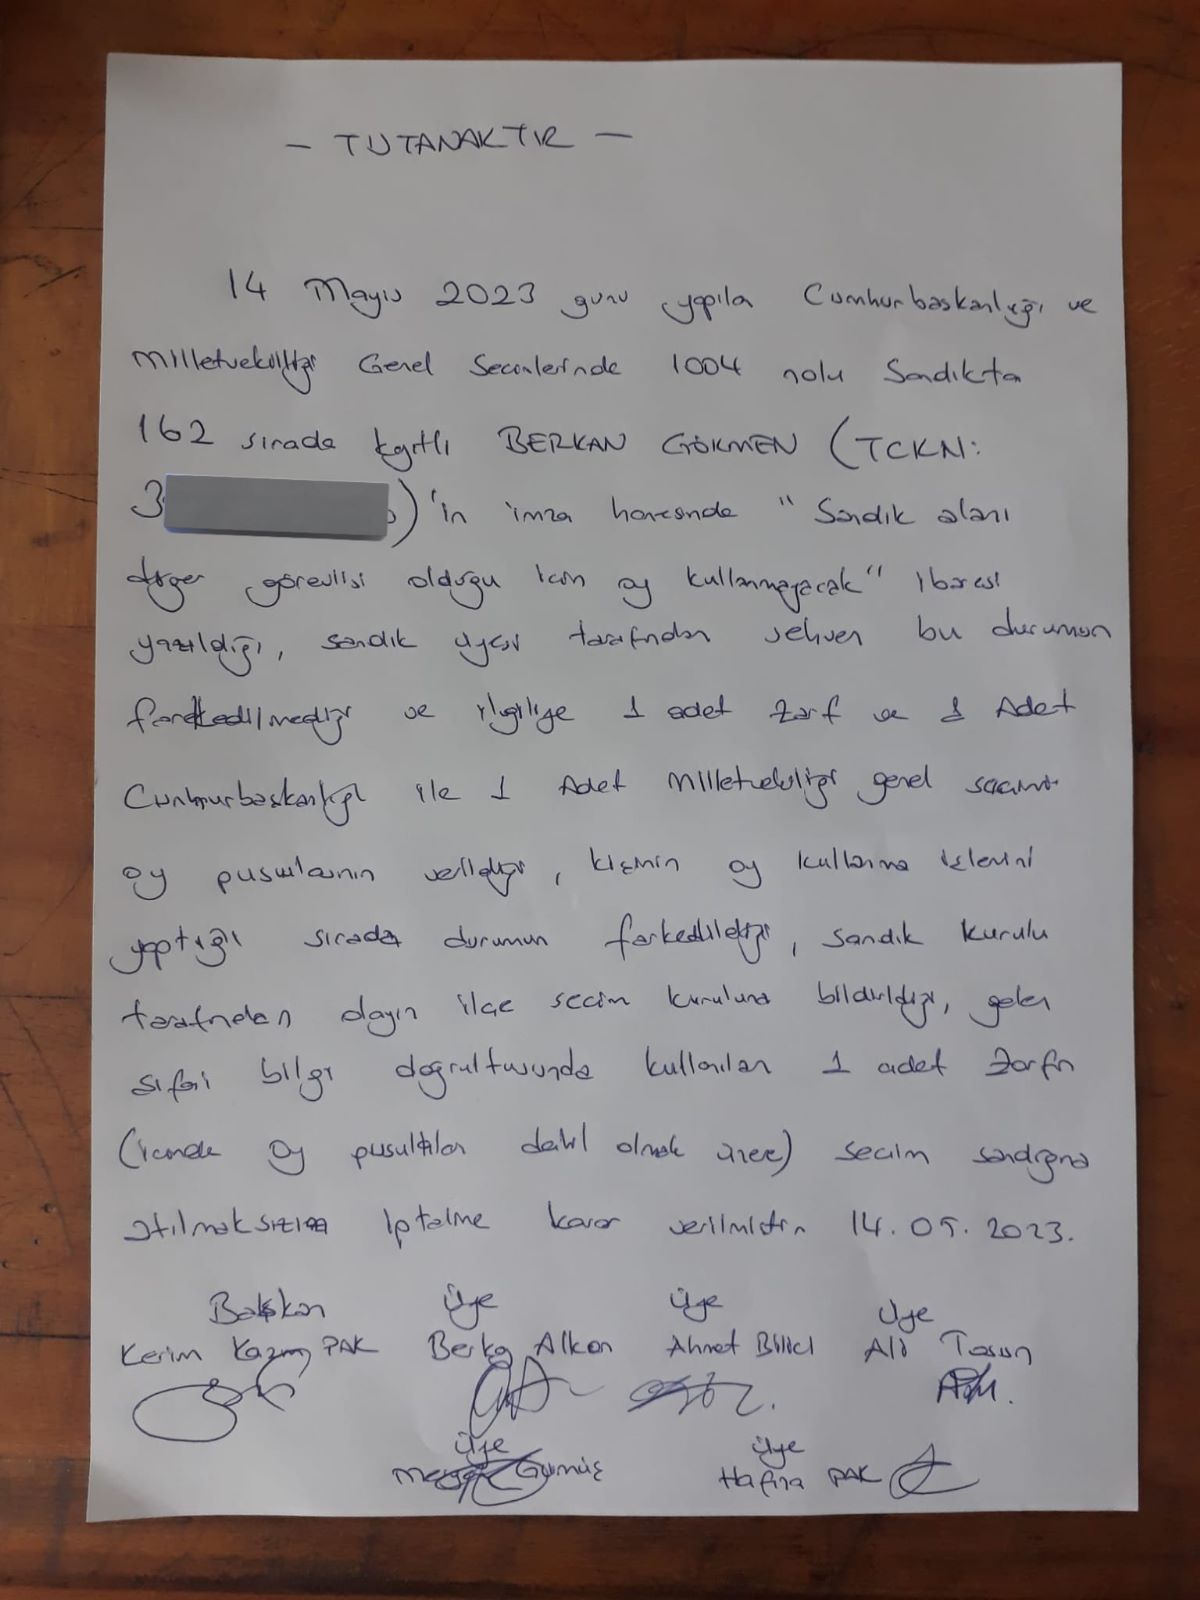 - TUTANAKTIR -
14 Mayıs 2023 günü yapıla Cumhurbaskanlığı ve
Milletvekilliği Genel Secimlerinde 1004 nolu Sandıkta
162 sırada kayıtlı BERKAN GÖKMEN (TCKN:
3 )'in imza hanesinde "Sandık alanı
diğer görevlisi olduğu icin oy kullanmayacak" ibaresi
yazıldığı, sandık üyesi tarafından sehven bu durumun
farkedilmediği ve ilgiliye 1 adet zarf ve 1 Adet
Cumhurbaskanlığı ile 1 Adet Milletvekilliği genel secimi
oy pusulalarının verildiği, kişinin oy kullanma işlemini
yaptığı sırada durumun farkedildiği, sandık kurulu
tarafından olayın ilçe secim kuruluna bildirildiği, gelen
sifai bilgi doğrultusunda kullanılan 1 adet zarfın
(icinde oy pusulaları dahil olmak üzere) secim sandığına
atılmaksızın iptaline karar verilmistir. 14.05.2023.
Başkan Üye Üye Üye
Kerim Kazım PAK Berkay Alkan Ahmet Bilici Ali Tosun
Üye Üye
Gümüş Hafiza PAK